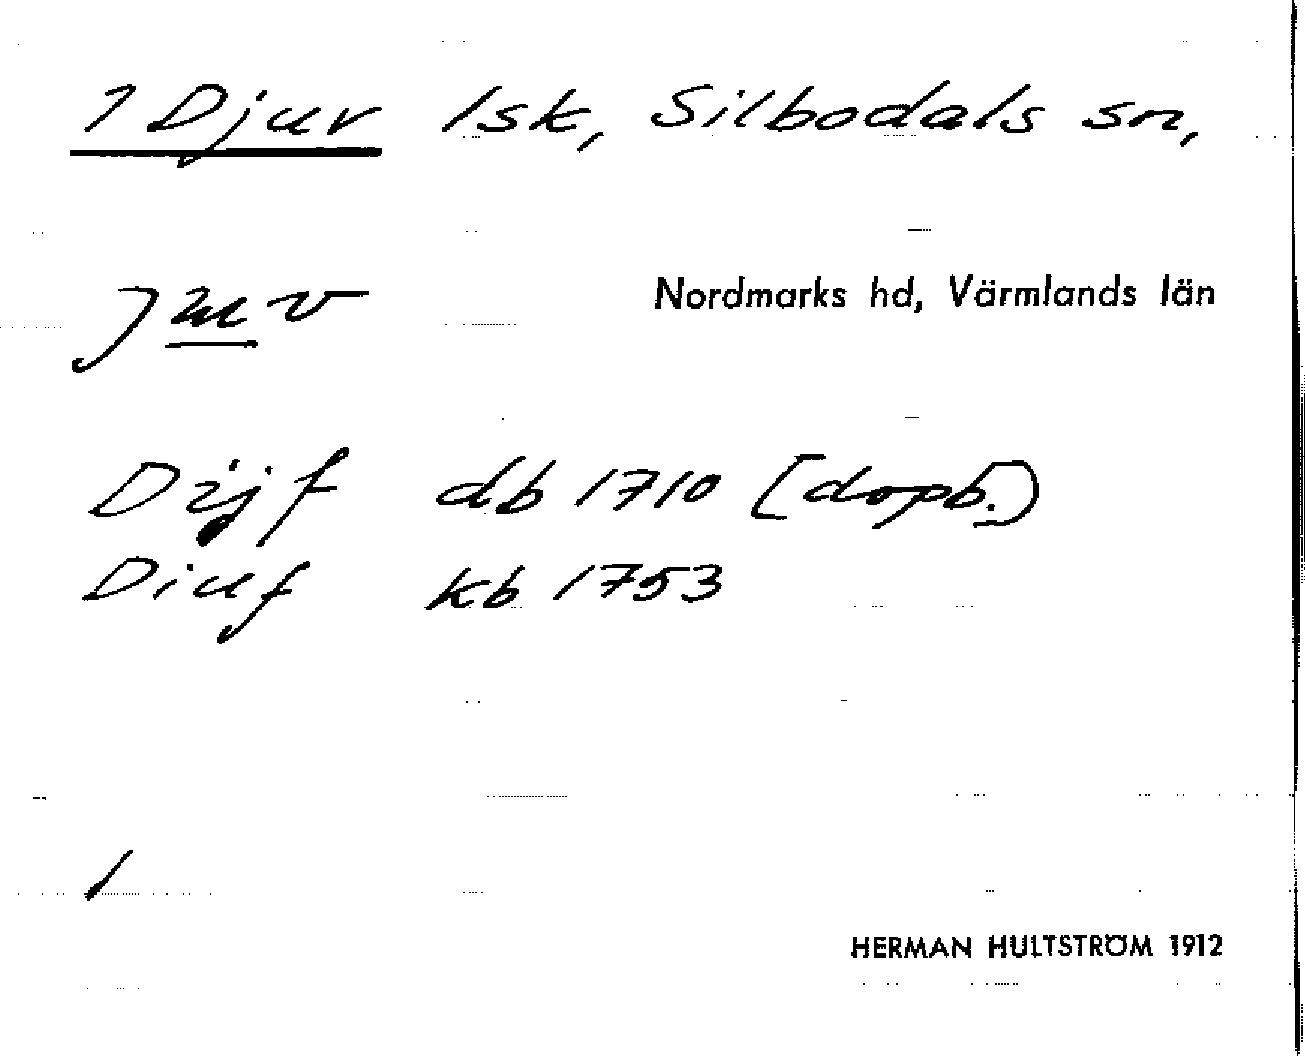 1 Djur lsk, Silbodals sn,
Nordmarks hd, Värmlands län
Dijf db 1710 [dopb.)
Diuf kb 1753
1
HERMAN HULTSTRÖM 1912